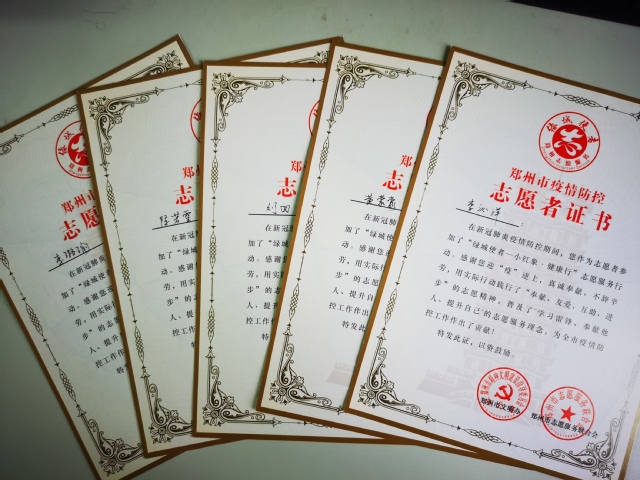 郑州市疫情防控
志愿者证书
在新冠肺炎疫情防控期间，您作为志愿者参
加了“绿城使者—小红象·健康行”志愿服务行
动。感谢您迎“疫”逆上，真诚奉献、不辞辛
劳，用实际行动践行了“奉献、友爱、互助、进
步”的志愿精神，普及了“学习雷锋、奉献他
人、提升自己”的志愿服务理念，为全市疫情防
控工作作出了贡献！
特发此证，以资鼓励。
郑州市文明办
郑州市志愿服务联合会
郑州市
志
黄紫霄
在新冠肺
加了“绿城使
动。感谢您
劳，用实际
步”的志
人、提升
控工作作
特发
郑
志
刘田
在新冠肺
加了“绿城
动。感谢您
劳，用实际
步”的志
人、提升
控工作作
特发
郑州
志
在新冠
加了“绿城
动。感谢
劳，用实
步”的志
人、提升
控工作作
特发
郑州市
志愿
在新冠肺
加了“绿城使
动。感谢您
劳，用实际行
步”的志
人、提升
控工作作
特发